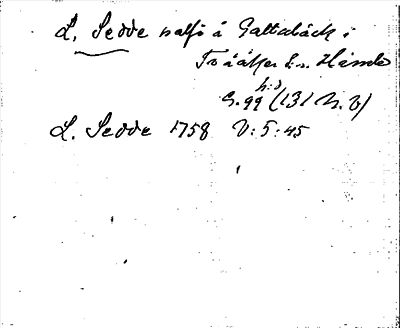 L. Sedde nalfö å Galtabäck i
Tvååker s:n Himle
h:d
S. 99 (131 N. V)
L. Sedde 1758 V: 5: 45